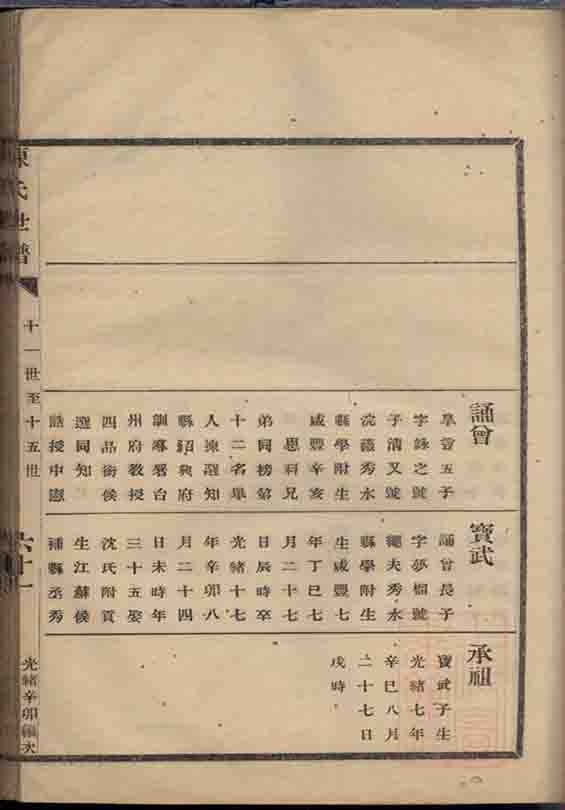 誦曾
皐言五子
字詠之號
子清又號
沈薇秀水
縣學附生
咸豐辛亥
恩科兄
弟同榜第
十二名舉
人揀選知
縣紹興府
訓導署台
州府教授
四品銜候
選同知
誥授中憲
寶武
誦曾長子
字夢樹號
繩夫秀水
縣學附生
生咸豐七
年丁巳七
月二十七
日辰時卒
光緒十七
年辛卯八
月二十四
日未時年
三十五娶
沈氏附貢
生江蘇候
補縣丞秀
承祖
寶武子生
光緒七年
辛巳八月
二十七日
戌時
陳氏世譜
十一世至十五世
六十一
光緒辛卯續次